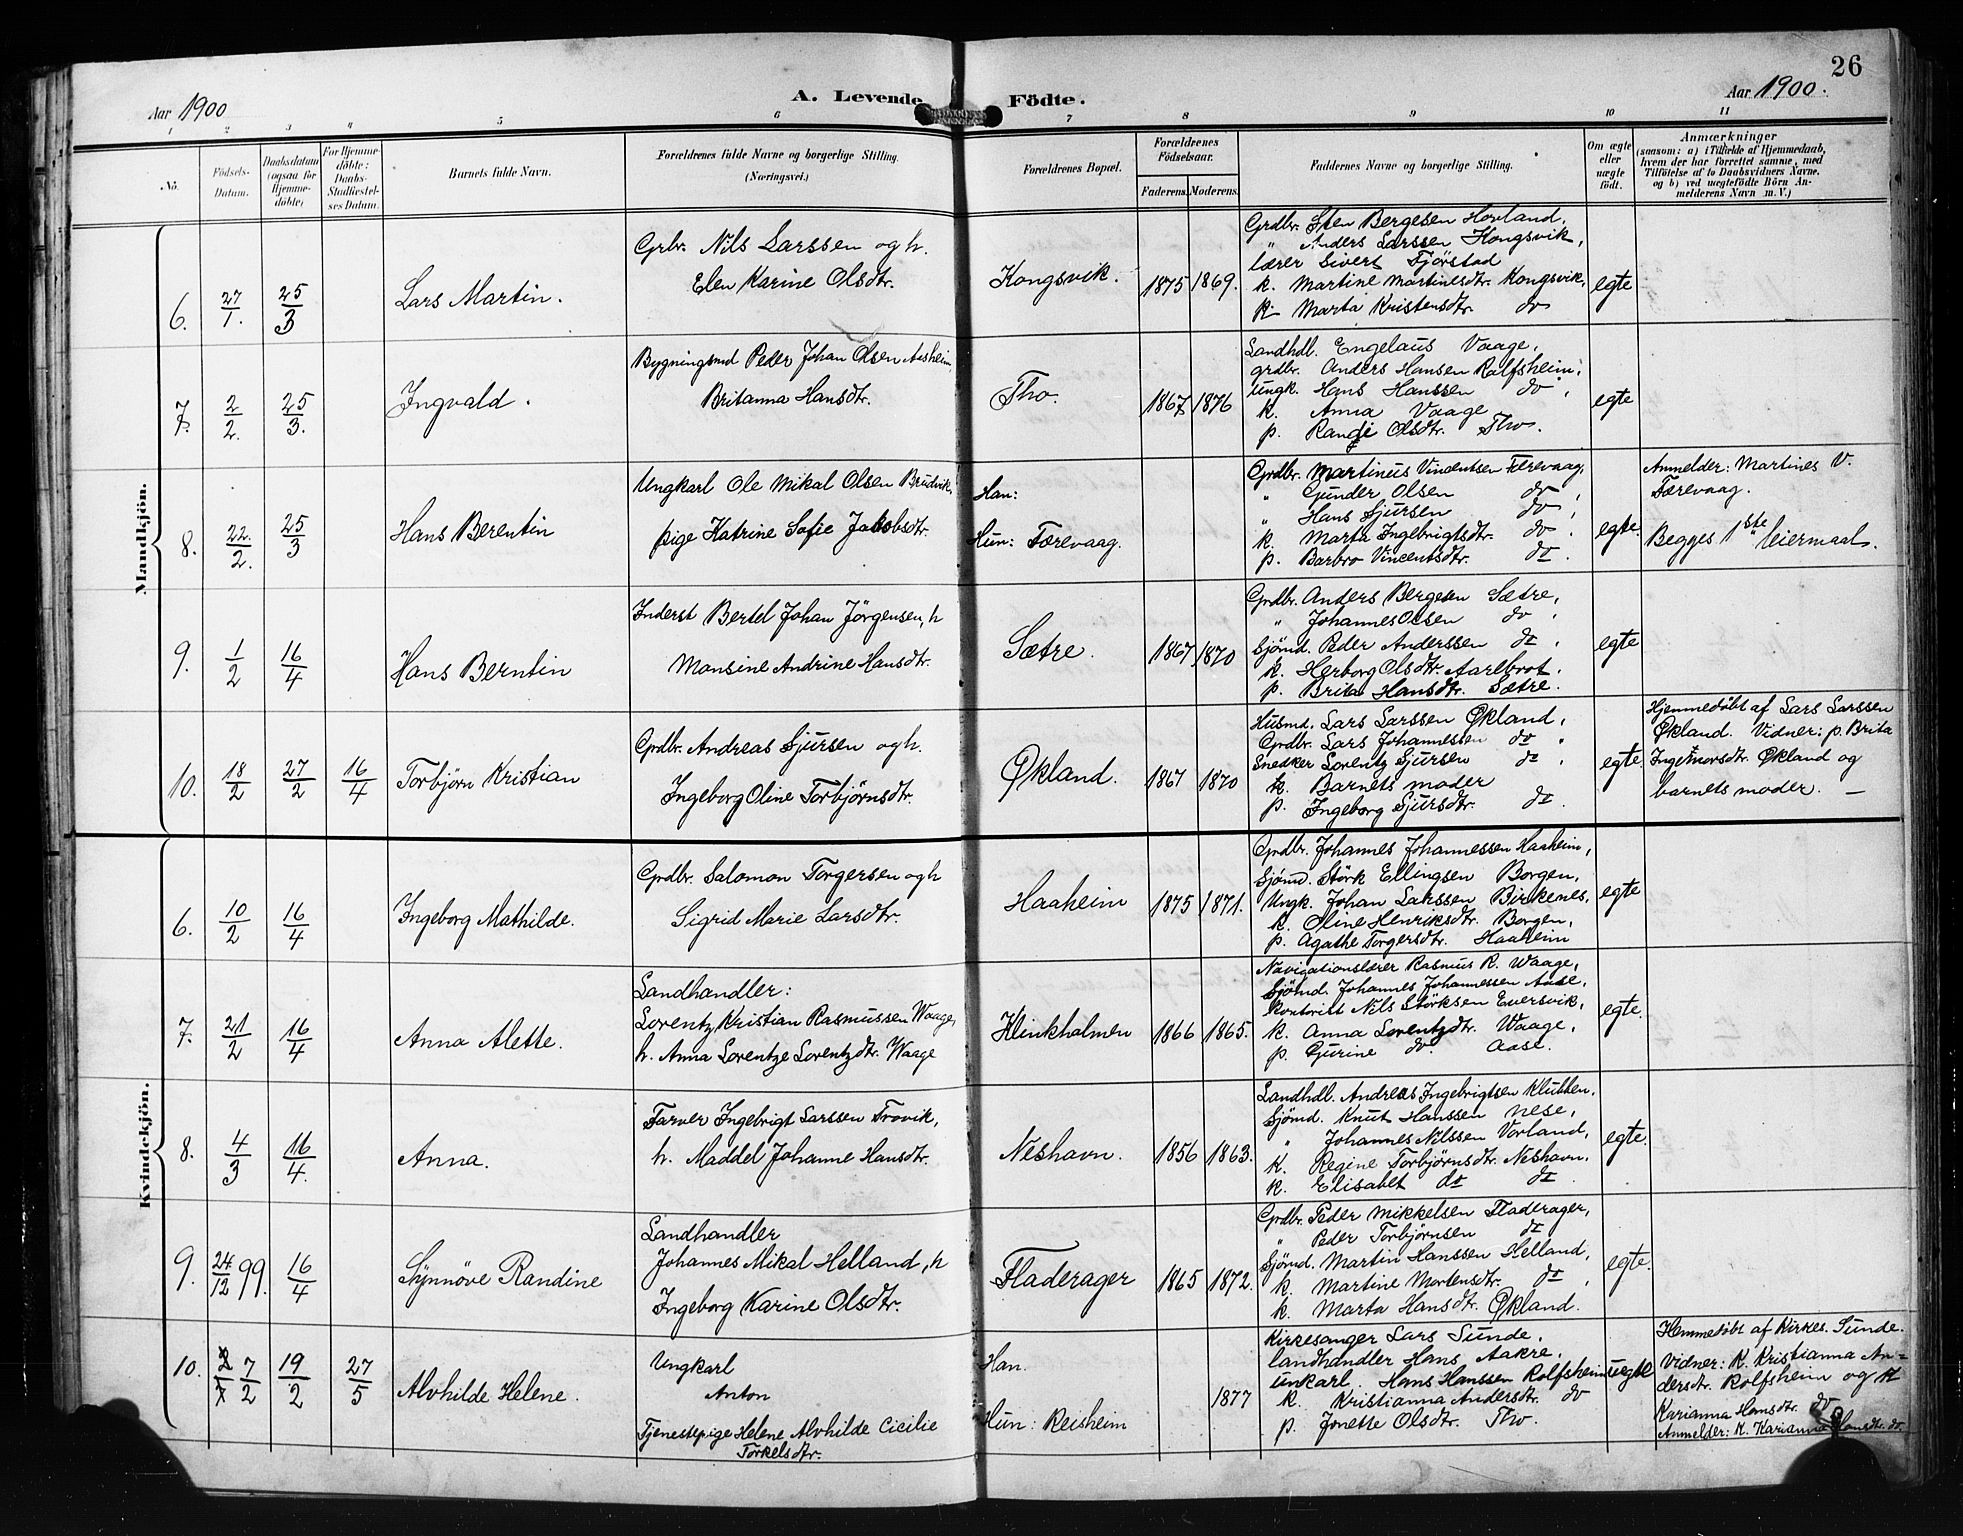 26
Aar 1900
A. Levende Födte.
Aar 1900.
1 2 3 4 5 6 7 8 9 10 11
No.
Födsels-Datum.
Daabsdatum (ogsaa for Hjemme-döbte)
For Hjemme-döbte: Daabs-Stadfæstel-ses Datum.
Barnets fulde Navn.
Forældrenes fulde Navne og borgerlige Stilling.
(Næringsvei.)
Forældrenes Bopæl.
Forældrenes Födselsaar.
Faderens. Moderens.
Faddernes Navne og borgerlige Stilling.
Om ægte eller uægte födt.
Anmærkninger
(saasom: a) i Tilfælde af Hjemmedaab,
hvem der har forrettet samme, med
Tilföielse af to Daabsvidners Navne,
og b) ved uægtefödte Börn An-
melderens Navn m. V.)
Mandkjön.
6. 27/1. 25/3 Lars Martin.
Grbr. Nils Larssen og h.
Elen Karine Olsdtr.
Kongsvik. 1875 1869.
Grdbr. Sten Bergesen Hovland,
" Anders Larssen Kongsvik,
lærer Sivert Fjörstad
k. Martine Martinesdtr. Kongsvik,
k. Marta Kristensdtr. do
egte
7. 2/2. 25/3. Ingvald.
Bygningsmd Peder Johan Olsen Aasheim,
Britanna Hansdtr.
Tho. 1867 1876
Landhdl. Engelaus Vaage,
grdbr. Anders Hansen Rolfsheim,
ungk. Hans Hanssen do,
k. Anna Vaage
p. Randi Olsdtr. Tho.
egte
8. 22./2. 25/3 Hans Berentin
Ungkarl Ole Mikal Olsen Brudvik,
pige Katrine Sofie Jakobsdtr.
Han:
Hun: Færevaag.
Grdbr. Martinus Vincentsen Færevaag,
" Gunder Olsen do,
" Hans Sjursen do,
k. Marta Ingebrigtsdtr. do.
p. Barbro Vincentsdtr. do.
egte.
Anmelder: Martines V.
Færevaag.
Begges 1ste leiermaal.
9. 1/2 16/4 Hans Berntin
Inderst Bertel Johan Jörgensen, h
Monsine Andrine Hansdtr.
Sætre. 1867 1870
Grdbr. Anders Bergesen Sætre,
" Johannes Olsen do,
Sjömd. Peder Anderssen do,
k. Herborg Olsdtr. Aarlbrot.
p. Brita Hansdtr. Sætre.
egte
10. 18/2 27/2 16/4 Torbjörn Kristian
Grdbr. Andreas Sjursen og h.
Ingeborg Oline Torbjörnsdtr.
Økland. 1867 1870
Husmd. Lars Larssen Økland,
Grdbr. Lars Johannessen do,
Snedker Lorentz Sjursen do,
k. Barnets moder
p. Ingeborg Sjursdtr. do.
egte.
Hjemmedöbt af Lars Larssen
Økland. Vidner: p. Brita
Ingemorsdtr. Økland og
barnets moder. —
Kvindekjön.
6. 10/2 16/4 Ingeborg Mathilde.
Grdbr. Salomon Torgersen og h
Sigrid Marie Larsdtr.
Haaheim 1875 1871.
Grdbr. Johannes Johannessen Haaheim,
Sjömd. Störk Ellingsen Borgen,
Ungk. Johan Larssen Birkenes,
k. Oline Henriksdtr. Borgen,
p. Agathe Torgersdtr. Haaheim
egte
7. 21/2 16/4 Anna Alette.
Landhandler:
Lorentz Kristian Rasmussen Waage,
h. Anna Lorentze Lorentzdtr. Waage
Klinkholmen 1866 1865.
Navigationslærer Rasmus R. Waage,
Sjömd. Johannes Johannessen Aase,
Kontorist Nils Störksen Eversvik,
k. Anna Lorentzdtr. Waage,
p. Gurine do. Aase.
egte.
8. 4/3 16/4. Anna.
Farver Ingebrigt Larssen Trovik,
h. Maddel Johanne Hansdtr.
Neshavn. 1856 1863.
Landhdl. Andreas Ingebrigtsen Klubben,
Sjömd. Knut Hanssen Nese,
" Johannes Nilssen Vorland,
k. Regine Torbjörnsdtr. Neshavn.
k. Elisabet do do.
egte.
9. 24/12 99. 16/4 Synnöve Randine
Landhandler
Johannes Mikal Helland, h
Ingeborg Karine Olsdtr.
Fladerager 1865 1872.
Grdbr. Peder Mikkelsen Fladerager,
" Peder Torbjörnsen do
Sjömd. Martin Hanssen Helland,
k. Martine Mortensdtr. do,
k. Marta Hansdtr. Økland.
egte.
10. 7/2 19/2 27/5 Alvhilde Helene.
Ungkarl
Anton
Tjenestepige Helene Alvhilde Cicilie
Torkelsdtr.
Han.
Hun: Reisheim
1877
Kirkesanger Lars Sunde,
landhandler Hans Aakre,
unkarl. Hans Hanssen Rolfsheim
k. Kristianna Andersdtr. do
p. Jonette Olsdtr. Tho.
uegte
Hemmedöbt af Kirkes. Sunde.
Vidner: K. Kristianna An-
dersdtr. Rolfsheim og K
Karianna Hansdtr. do
Anmelder: K. Karianna Hansdtr. do.